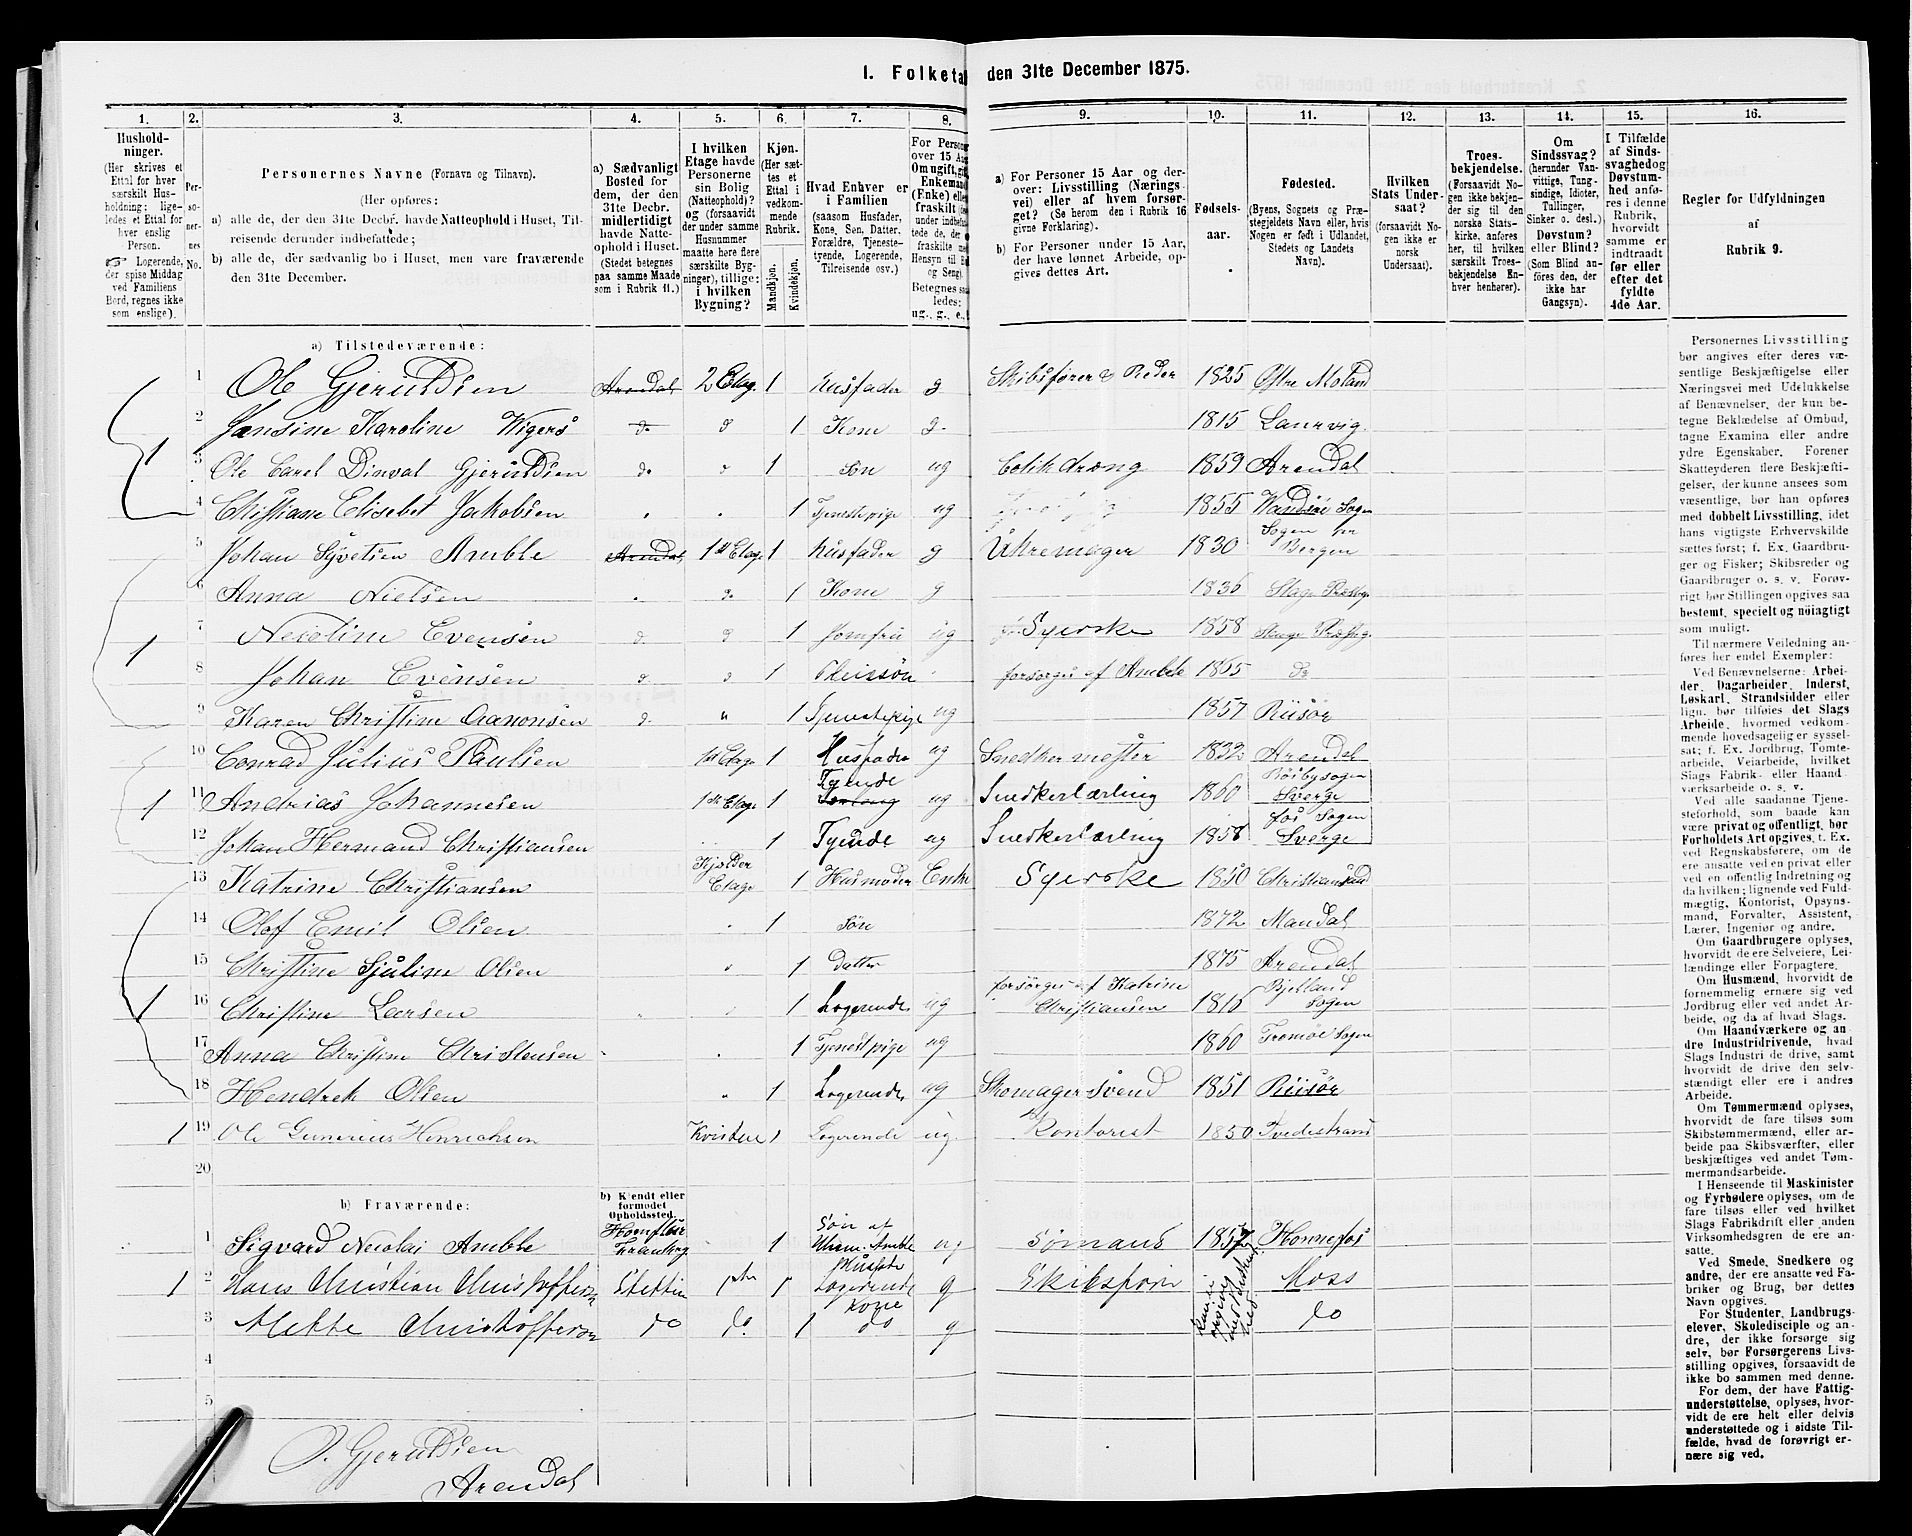 1. Folketæ
den 31te December 1875.
1. 2. 3. 4. 5. 6. 7. 8. 9. 10. 11. 12. 13. 14. 15. 16.
Hushold-
ninger.
(Her skrives et
Ettal for hver
særskilt Hus-
holdning; lige-
ledes et Ettal for
hver enslig
Person.
☞ Logerende,
der spise Middag
ved Familiens
Bord, regnes ikke
som enslige).
Per-
so-
ner-
nes
No.
Personernes Navne (Fornavn og Tilnavn).
(Her opføres:
a) alle de, der den 31te Decbr. havde Natteophold i Huset, Til-
reisende derunder indbefattede;
b) alle de, der sædvanlig bo i Huset, men vare fraværende
den 31te December.
a) Sædvanligt
Bosted for
dem, der den
31te Decbr.
midlertidigt
havde Natte-
ophold i Huset.
(Stedet betegnes
paa samme Maade
som i Rubrik 11.)
I hvilken
Etage havde
Personerne
sin Bolig
(Natteophold)?
og (forsaavidt
der under samme
Husnummer
maatte høre flere
særskilte Byg-
ninger), tillige:
i hvilken
Bygning?
Kjøn.
(Her sæt-
tes et
Ettal i
vedkom-
mende
Rubrik.
Mandkjøn.
Kvindekjøn.
Hvad Enhver er
i Familien
(saasom Husfader,
Kone, Søn, Datter,
Forældre, Tjeneste-
tyende, Logerende,
Tilreisende osv.)
For Person
over 15 Aa
Om ugift, gif
Enkemand
(Enke) ell
fraskilt (
tede de, der
fraskilte me
Hensyn til B
og Seng).
Betegnes saa
ledes:
ug., g., e.,
a) For Personer 15 Aar og der-
over: Livsstilling (Nærings-
vei) eller af hvem forsør-
get? (Se herom den i Rubrik 16
givne Forklaring).
b) For Personer under 15 Aar,
der have lønnet Arbeide, op-
gives dettes Art.
Fødsels-
aar.
Fødested.
(Byens, Sognets og Præ-
stegjeldets Navn eller, hvis
Nogen er født i Udlandet,
Stedets og Landets
Navn).
Hvilken
Stats Under-
saat?
(forsaavidt No-
gen ikke er
norsk
Undersaat).
Troes-
bekjendelse.
(Forsaavidt No-
gen ikke bekjen-
der sig til den
norske Stats-
kirke, anføres
her, til hvilken
særskilt Troes-
bekjendelse En-
hver henhører).
Om
Sindssvag?
(herunder Van-
vittige, Tung-
sindige, Idioter,
Tullinger,
Sinker o. desl.)
Døvstum?
eller Blind?
(Som Blind an-
føres den, der
ikke har
Gangsyn).
I Tilfælde
af Sinds-
svaghed og
Døvstum-
hed anfø-
res i denne
Rubrik,
hvorvidt
samme er
indtraadt
før eller
efter det
fyldte
4de Aar.
Regler for Udfyldningen
af
Rubrik 9.
a) Tilstedeværende:
1 Ole Gjeruldsen Arendal 2 Etag. 1 Husfader g Skibsfører & Reder 1825 Østre Moland
2 Jensine Karoline Wigers do d 1 Kone g. 1815 Laurvig.
1 3 Ole Carel Dinval Gjeruldsen do 1 Søn ug 1859 Arendal
4 Christiane Elisebet Jakobsen 1 Tjenestepige ug 1855 Sogn
5 Johan Syvetsen Amble Arendal 1st Etage 1 Husfader g Uhremager 1830 Sogen Bergen
6 Anna Nielsen 1 Kone g 1836
1 7 Nicoline Evensen d 1 Jomfru ug Syerske 1858
8 Johan Evensen 1 Pleiesøn forsørges af Amble 1865 do
9 Karen Christine Aanonsen d. 1 Tjenestepige ug 1857 Riisør
10 Conrad Julius Paulsen 1st Etage 1 Husfader ug Snedkermester 1832 Arendal
1 11 Andrias Johannesen 1st Etage 1 Tyende ug Snedkerlærling 1860 Sverge
12 Johan Hermand Christiansen 1 Tyende ug Snedkerlærling 1858 Sogen Sverge
13 Katrine Christiansen Kjelder Etage 1 Husmoder Enke Syerske 1850 Christiansand
14 Olaf Emil Olsen 1 Søn 1872 Mandal
15 Christine Sjuline Olsen 1 Datter 1875 Arendal
1 16 Christine Larsen 1 Logerende ug forsørges af Katrine Christiansen 1816 Bjelland Sogen
17 Anna Christine Christensen 1 Tjenestpige ug 1860 Tromøe Sogen
18 Hendrek Olsen 1 Logerende ug Skomagersvend 1851 Riisør
1 19 Ole Gunerius Henrichsen Kvisten 1 Logerende ug. Kontorist 1850 Tvedestrand
20
b) Fraværende:
b) Kjendt eller
formodet
Opholdssted.
1 Sigvard Nicolai Amble Honfleur Frankrig 1 Søn af Uhrm. Amble ug Sømand 1857 Hønnefos
1 2 Hans Christian Christoffersen Stettin 1 Logerende g Skibsfører Moss
3 Mette Christoffersen do do 1 Kone do g do
4
5
O. Gjeruldsen
Arendal
Personernes Livsstilling
bør angives efter deres væ-
sentlige Beskjæftigelse eller
Næringsvei med Udelukkelse
af Benævnelser, der kun be-
tegne Beklædelse af Ombud,
tagne Examina eller andre
ydre Egenskaber. Forener
Skatteyderen flere Beskjæfti-
gelser, der kunne ansees som
væsentlige, bør han opføres
med dobbelt Livsstilling, idet
hans vigtigste Erhvervskilde
sættes først; f. Ex. Gaardbru-
ger og Fisker; Skibsreder og
Gaardbruger o. s. v. Forøv-
rigt bør Stillingen opgives saa
bestemt, specielt og nöiagtigt
som muligt.
Til nærmere Veiledning an-
føres her endel Exempler:
Ved Benævnelserne: Arbei-
der, Dagarbeider, Inderst,
Løskarl, Strandsidder eller
lign. bør tilføies det Slags
Arbeide, hvormed vedkom-
mende hovedsagelig er syssel-
sat; f. Ex. Jordbrug, Tomte-
arbeide, Veiarbeide, hvilket
Slags Fabrik- eller Haand
værksarbeide o. s. v.
Ved alle saadanne Tjene-
steforhold, som baade kan
være privat og offentligt, bør
Forholdets Art opgives, f. Ex.
ved Regnskabsførere, om de
ere ansatte ved en privat eller
ved en offentlig Indretning og
da hvilken; lignende ved Fuld-
mægtig, Kontorist, Opsyns-
mand, Forvalter, Assistent,
Lærer, Ingeniør og andre.
Om Gaardbrugere oplyses,
hvorvidt de ere Selveiere, Lei-
lændinge eller Forpagtere.
Om Husmænd, hvorvidt de
fornemmelig ernære sig ved
Jordbrug eller ved andet Ar-
beide, og da af hvad Slags.
Om Haandværkere og an
dre Industridrivende, hvad
Slags Industri de drive, samt
hvorvidt de drive den selv-
stændigt eller ere i andres
Arbeide.
Om Tømmermænd oplyses,
hvorvidt de fare tilsøs som
Skibstømmermænd, eller ar-
beide paa Skibsværfter, eller
beskjæftiges ved andet Tøm-
mermandsarbeide.
I Henseende til Maskinister
og Fyrbødere oplyses, om de
fare tilsøs eller ved hvilket
Slags Fabrikdrift eller anden
Virksomhedsgren de ere an-
satte.
Ved Smede, Snedkere og
andre, der ere ansatte ved Fa-
briker og Brug, bør dettes
Navn opgives.
For Studenter, Landbrugs-
elever, Skoledisciple og an-
dre, der ikke forsørge sig
selv, bør Forsørgerens Livs-
stilling opgives, forsaavidt de
ikke bo sammen med denne.
For dem, der have Fattig-
understøttelse, oplyses, hvor-
vidt de ere helt eller delvis
understøttede og i sidste Til-
fælde, hvad de forøvrigt er-
nære sig ved.